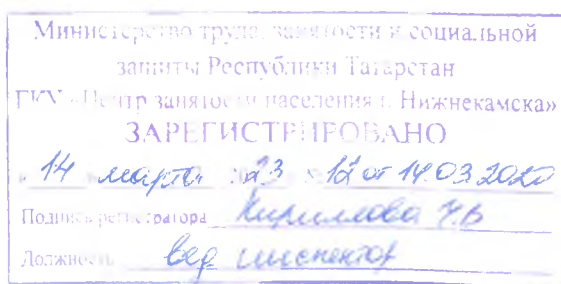 Министерство труда, занятости и социальной
защиты Республики Татарстан
ГКУ «Центр занятости населения г. Нижнекамска»
ЗАРЕГИСТРИРОВАНО
"14 марта 2023 № 12 от 14.03.2020
Подпись регистратора Кириллова Ч.В
Должность вед инспектор